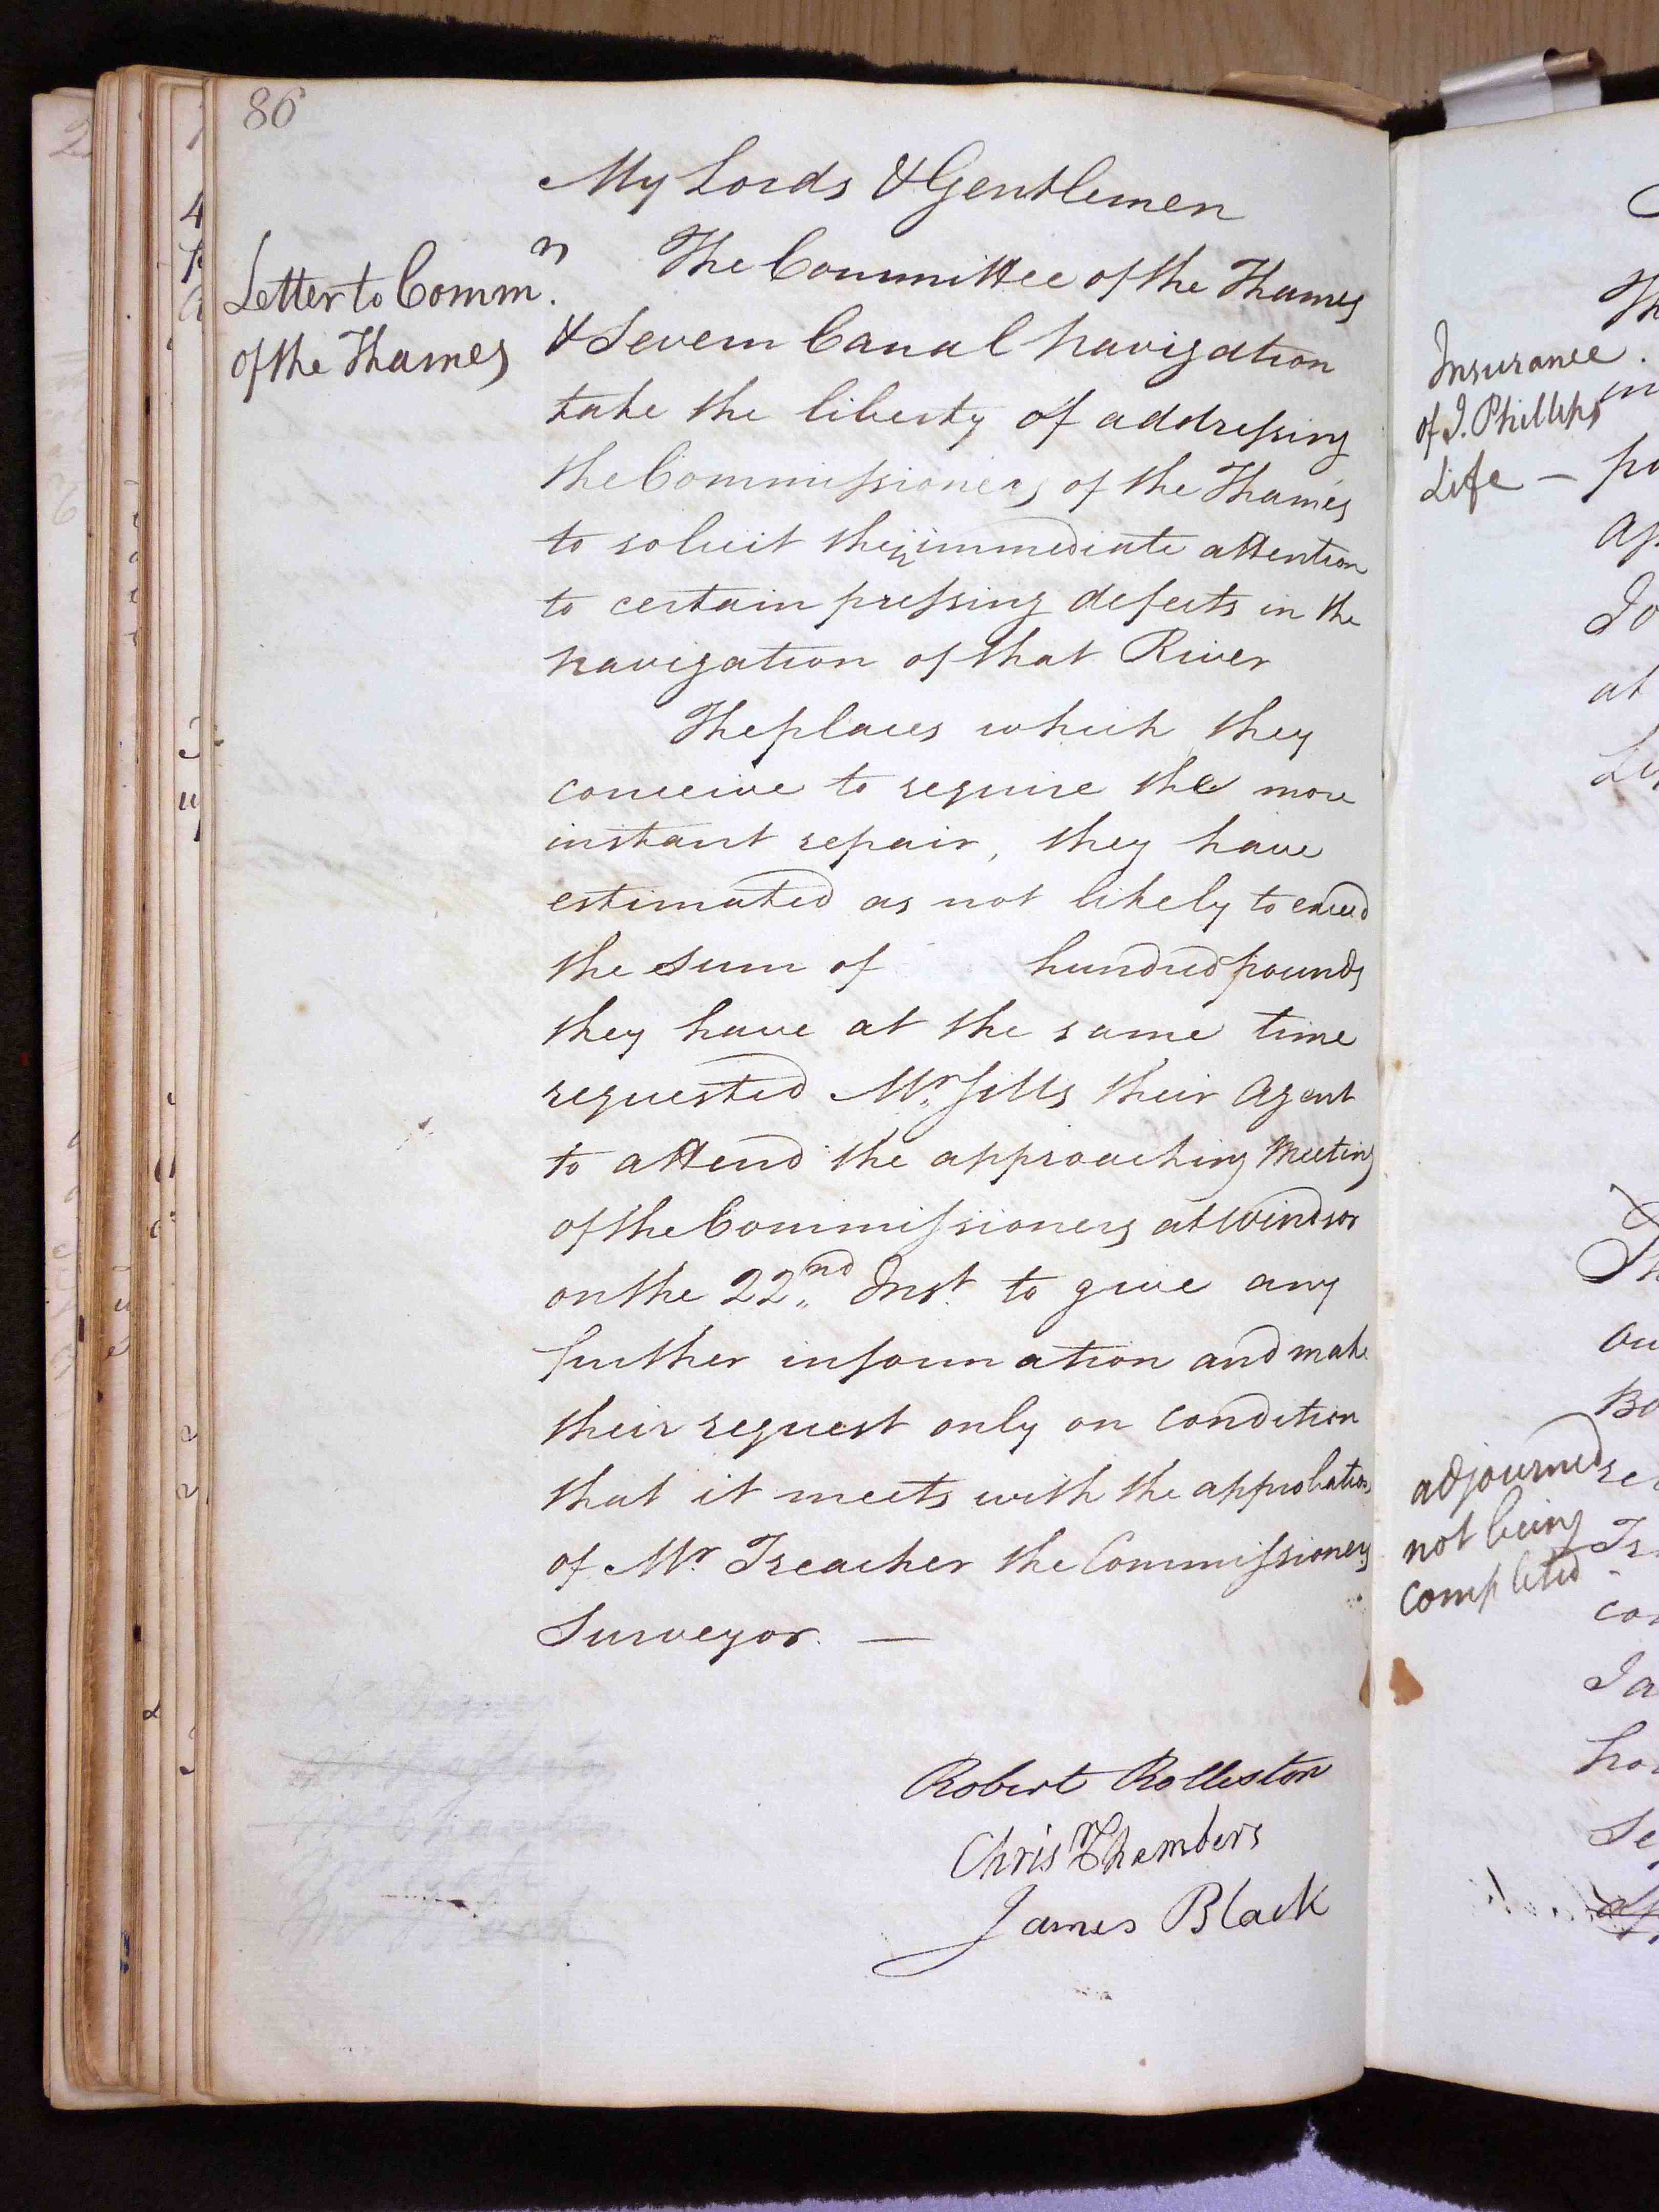 86
My Lords & Gentlemen
Letter to Comm.n
of the Thames
The Committee of the Thames
& Severn Canal Navigation
take the liberty of addressing
the Commissioners of the Thames
to solicit their immediate attention
to certain pressing defects in the
navigation of that River
The places which they
conceive to require the more
instant repair, they have
estimated as not likely to exceed
the sum of hundred pounds
they have at the same time
requested Mr. their Agent
to attend the approaching Meeting
of the Commissioners at Windsor
on the 22nd Inst. to give any
further information and make
their request only on condition
that it meets with the approbation
of Mr. Treacher the Commissioners
Surveyor. —
Robert Rolleston
Chrisr Chambers
James Black
Insurance
of J. Phillips
Life —
adjourned
not being
completed